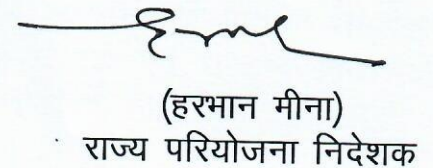 (हरभान मीना)
राज्य परियोजना निदेशक